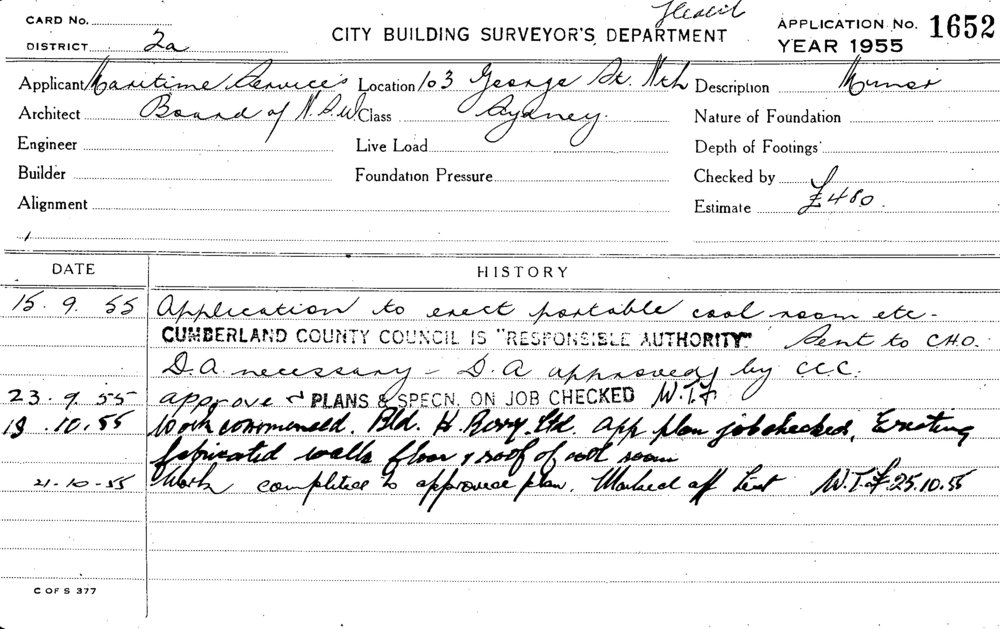 Health
CARD No.
CITY BUILDING SURVEYOR'S DEPARTMENT
APPLICATION No. 1652
DISTRICT 2a
YEAR 1955
Applicant Maritime Services Location 103 George St. Nth Description Minor
Architect Board of N.S.W Class Sydney. Nature of Foundation
Engineer Live Load Depth of Footings
Builder Foundation Pressure Checked by
Alignment Estimate £480.
DATE HISTORY
15. 9. 55 Application to erect portable cool room etc-
CUMBERLAND COUNTY COUNCIL IS "RESPONSIBLE AUTHORITY" Sent to C.H.O.
D.A. necessary - D.A approved by C.C.C.
23. 9. 55 approve & PLANS & SPECN. ON JOB CHECKED W.T.F
19. 10. 55 Work commenced. Bld. H. Ltd. App plan job checked. Erecting
fabricated walls floor & roof of room
21-10-55 Work completed to approved plan. Marked off W.T.F. 25.10.55
C OF S 377